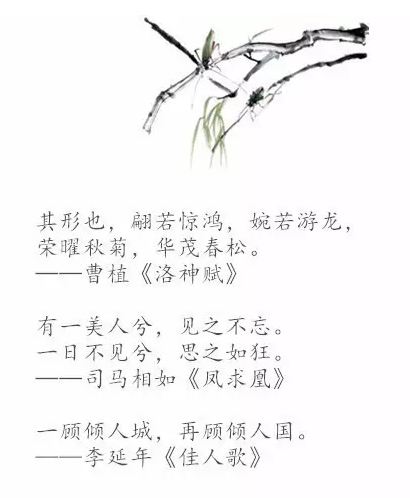 其形也，翩若惊鸿，婉若游龙，
荣曜秋菊，华茂春松。
——曹植《洛神赋》
有一美人兮，见之不忘。
一日不见兮，思之如狂。
——司马相如《凤求凰》
一顾倾人城，再顾倾人国。
——李延年《佳人歌》